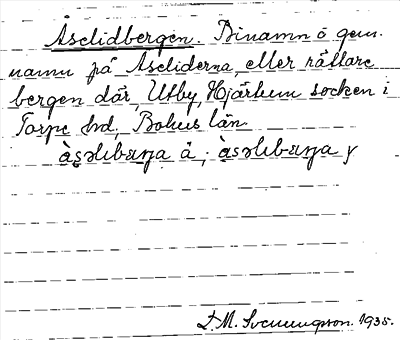 Åselidbergen. Binamn å gem.
namn på Åseliderna, eller rättare
bergen där, Utby, Hjärtum socken i
Torpe hd, Bohus län.
å ; y
S. M. Svenungsson. 1935.